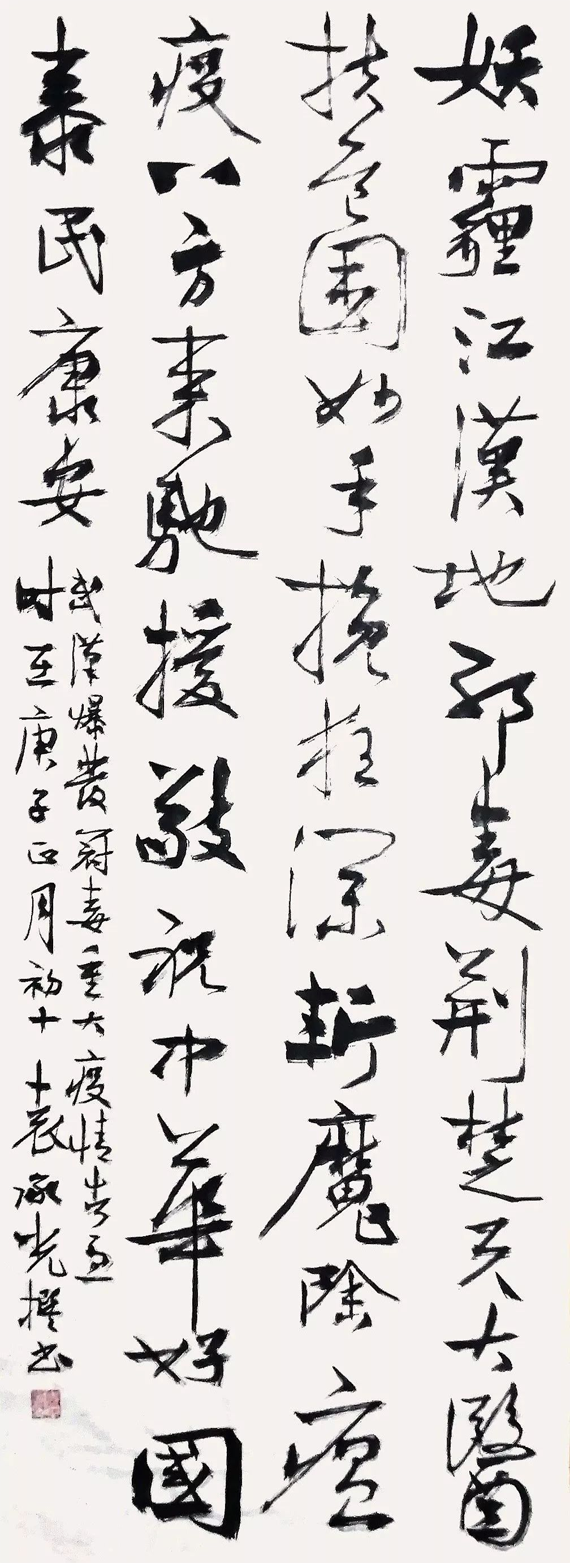 妖霾江漢地邪毒荆楚天大醫
扶危困妙手挽狂瀾斬魔除瘟
疫八方来馳援敬祝中華好國
泰民康安
武漢爆發冠毒重大疫情告急
时在庚子正月初十袁承光撰书